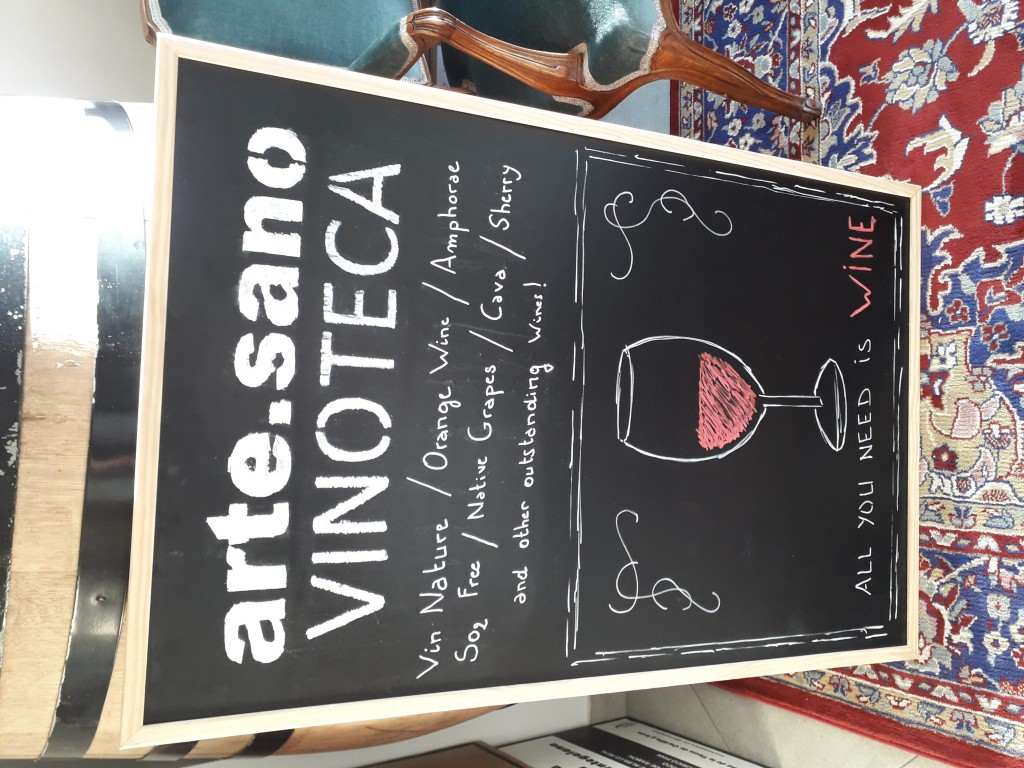 arte.sano
VINOTECA
Vin Nature / Orange Wine / Amphorae
SO2 Free / Native Grapes / Cava / Sherry
and other outstanding wines!
ALL YOU NEED is WiNE